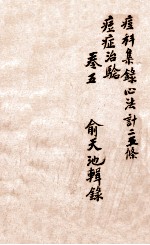 痘科集錄心法計二五條
痘症治驗
卷五
俞天池輯錄